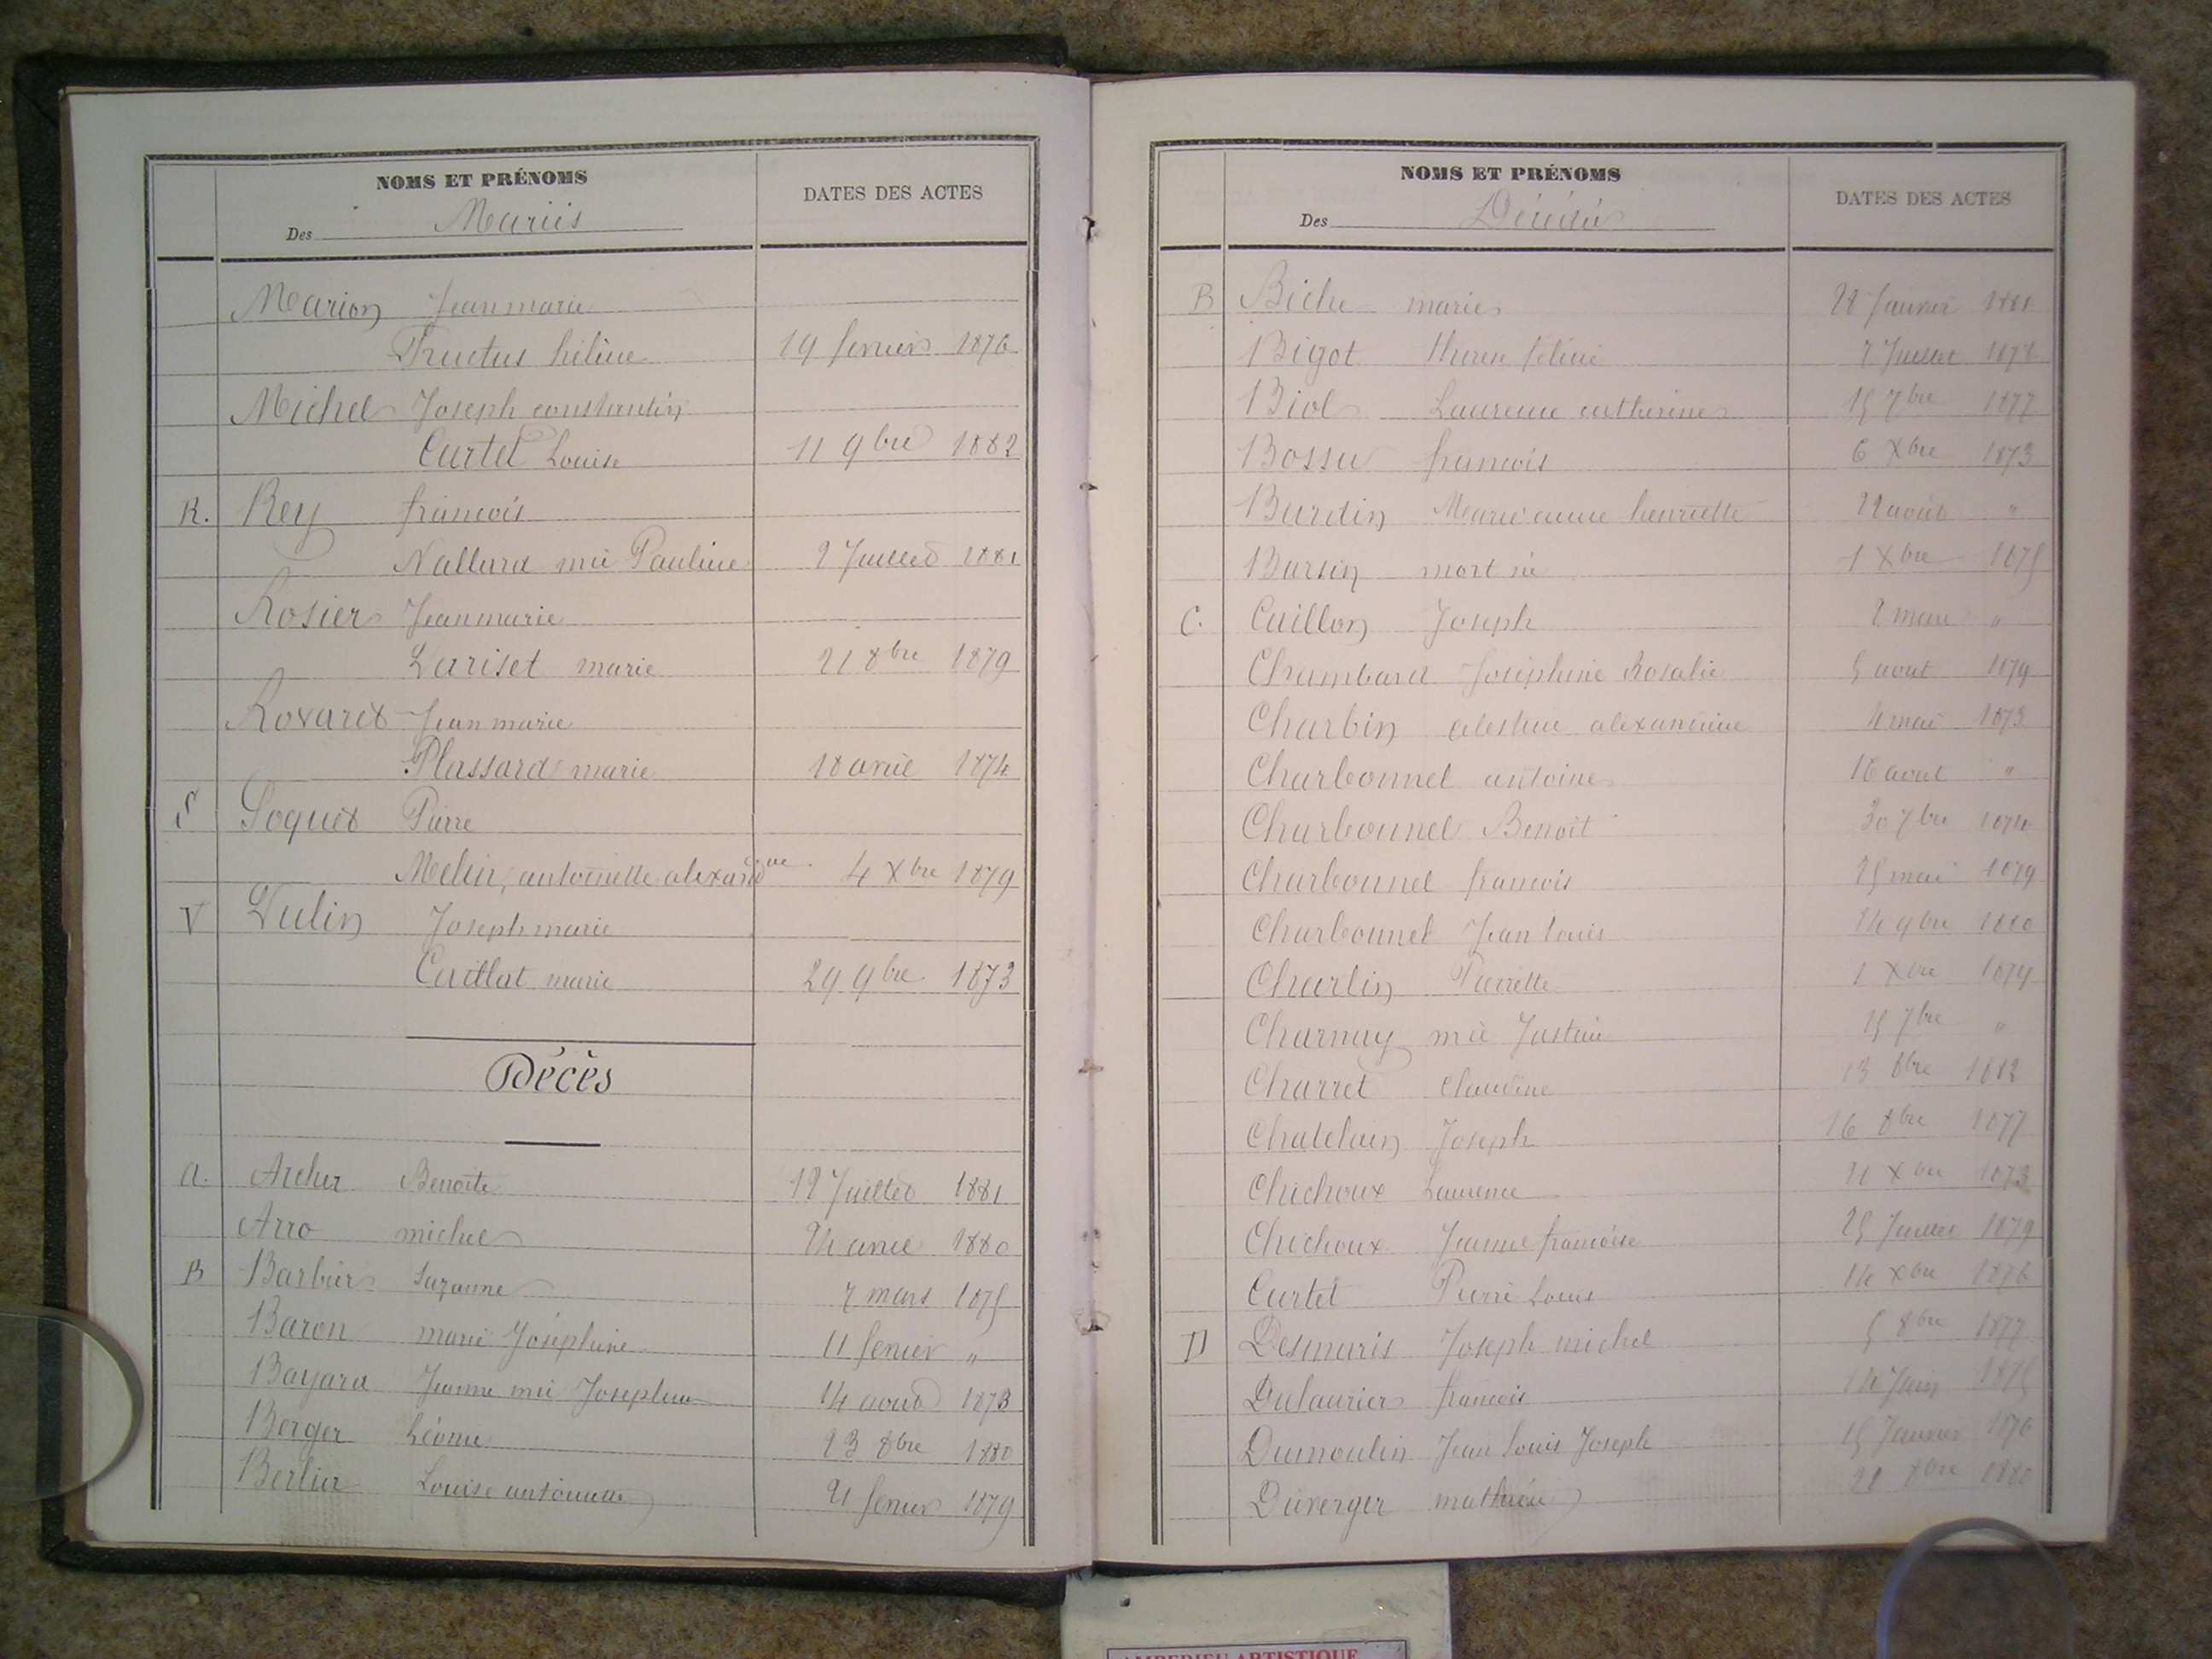 NOMS ET PRÉNOMS
Des Mariés
DATES DES ACTES
Marion Jean marie
Fructus hélène 19 fevrier 1876
Michel Joseph constantin
Curtet Louise 11 9bre 1882
R. Rey francois
Nallard mie Pauline 2 Juillet 1881
Rosier Jean marie
Lariset marie 21 8bre 1879
Rovaret Jean marie
Plassard marie 18 avril 1874
S Soquet Pierre
Melin, antoinette alexandine 4 Xbre 1879
V Vulin Joseph marie
Caillat marie 29 9bre 1873
Décès
A. Archer Benoite 12 Juillet 1881
Arro michel 24 avril 1880
B Barbier Suzanne 7 mars 1875
Baron marie Joséphine 11 fevrier "
Bayard Jeanne mie Josephine 14 aout 1873
Berger Léonie 23 8bre 1880
Berlier Louise antoinette 21 fevrier 1879
NOMS ET PRÉNOMS
Des Décédés
DATES DES ACTES
B Biche marie 28 Janvier 1881
Bigot féline 7 Juillet 1878
Biol Laurence catherine 15 7bre 1877
Bossu francois 6 Xbre 1873
Burdin Marie anne henriette 22 aout "
Bursin mort né 1 Xbre 1875
C. Caillon Joseph 2 mars "
Chambard Joséphine Rosalie 5 aout 1879
Charbin celestine alexandrine 4 mai 1873
Charbonnel antoine 16 aout "
Charbonnel Benoit 30 7bre 1874
Charbonnel francois 25 mai 1879
Charbonnel Jean Louis 24 9bre 1880
Charlin Pierrette 1 Xbre 1874
Charnay mie Justine 15 7bre "
Charret Claudine 13 8bre 1882
Chatelain Joseph 16 8bre 1877
Chichoux Laurence Xbre 1873
Chichoux Jeanne francoise 25 Juillet 1879
Curtet Pierre Louis 14 Xbre 1876
D Desmaris Joseph michel 5 8bre 1877
Dulaurier francois Juin 1875
Dumoulin Jean Louis Joseph 15 Janvier 1876
Duverger mathieu 8bre 1880
AMBERIEU ARTISTIQUE